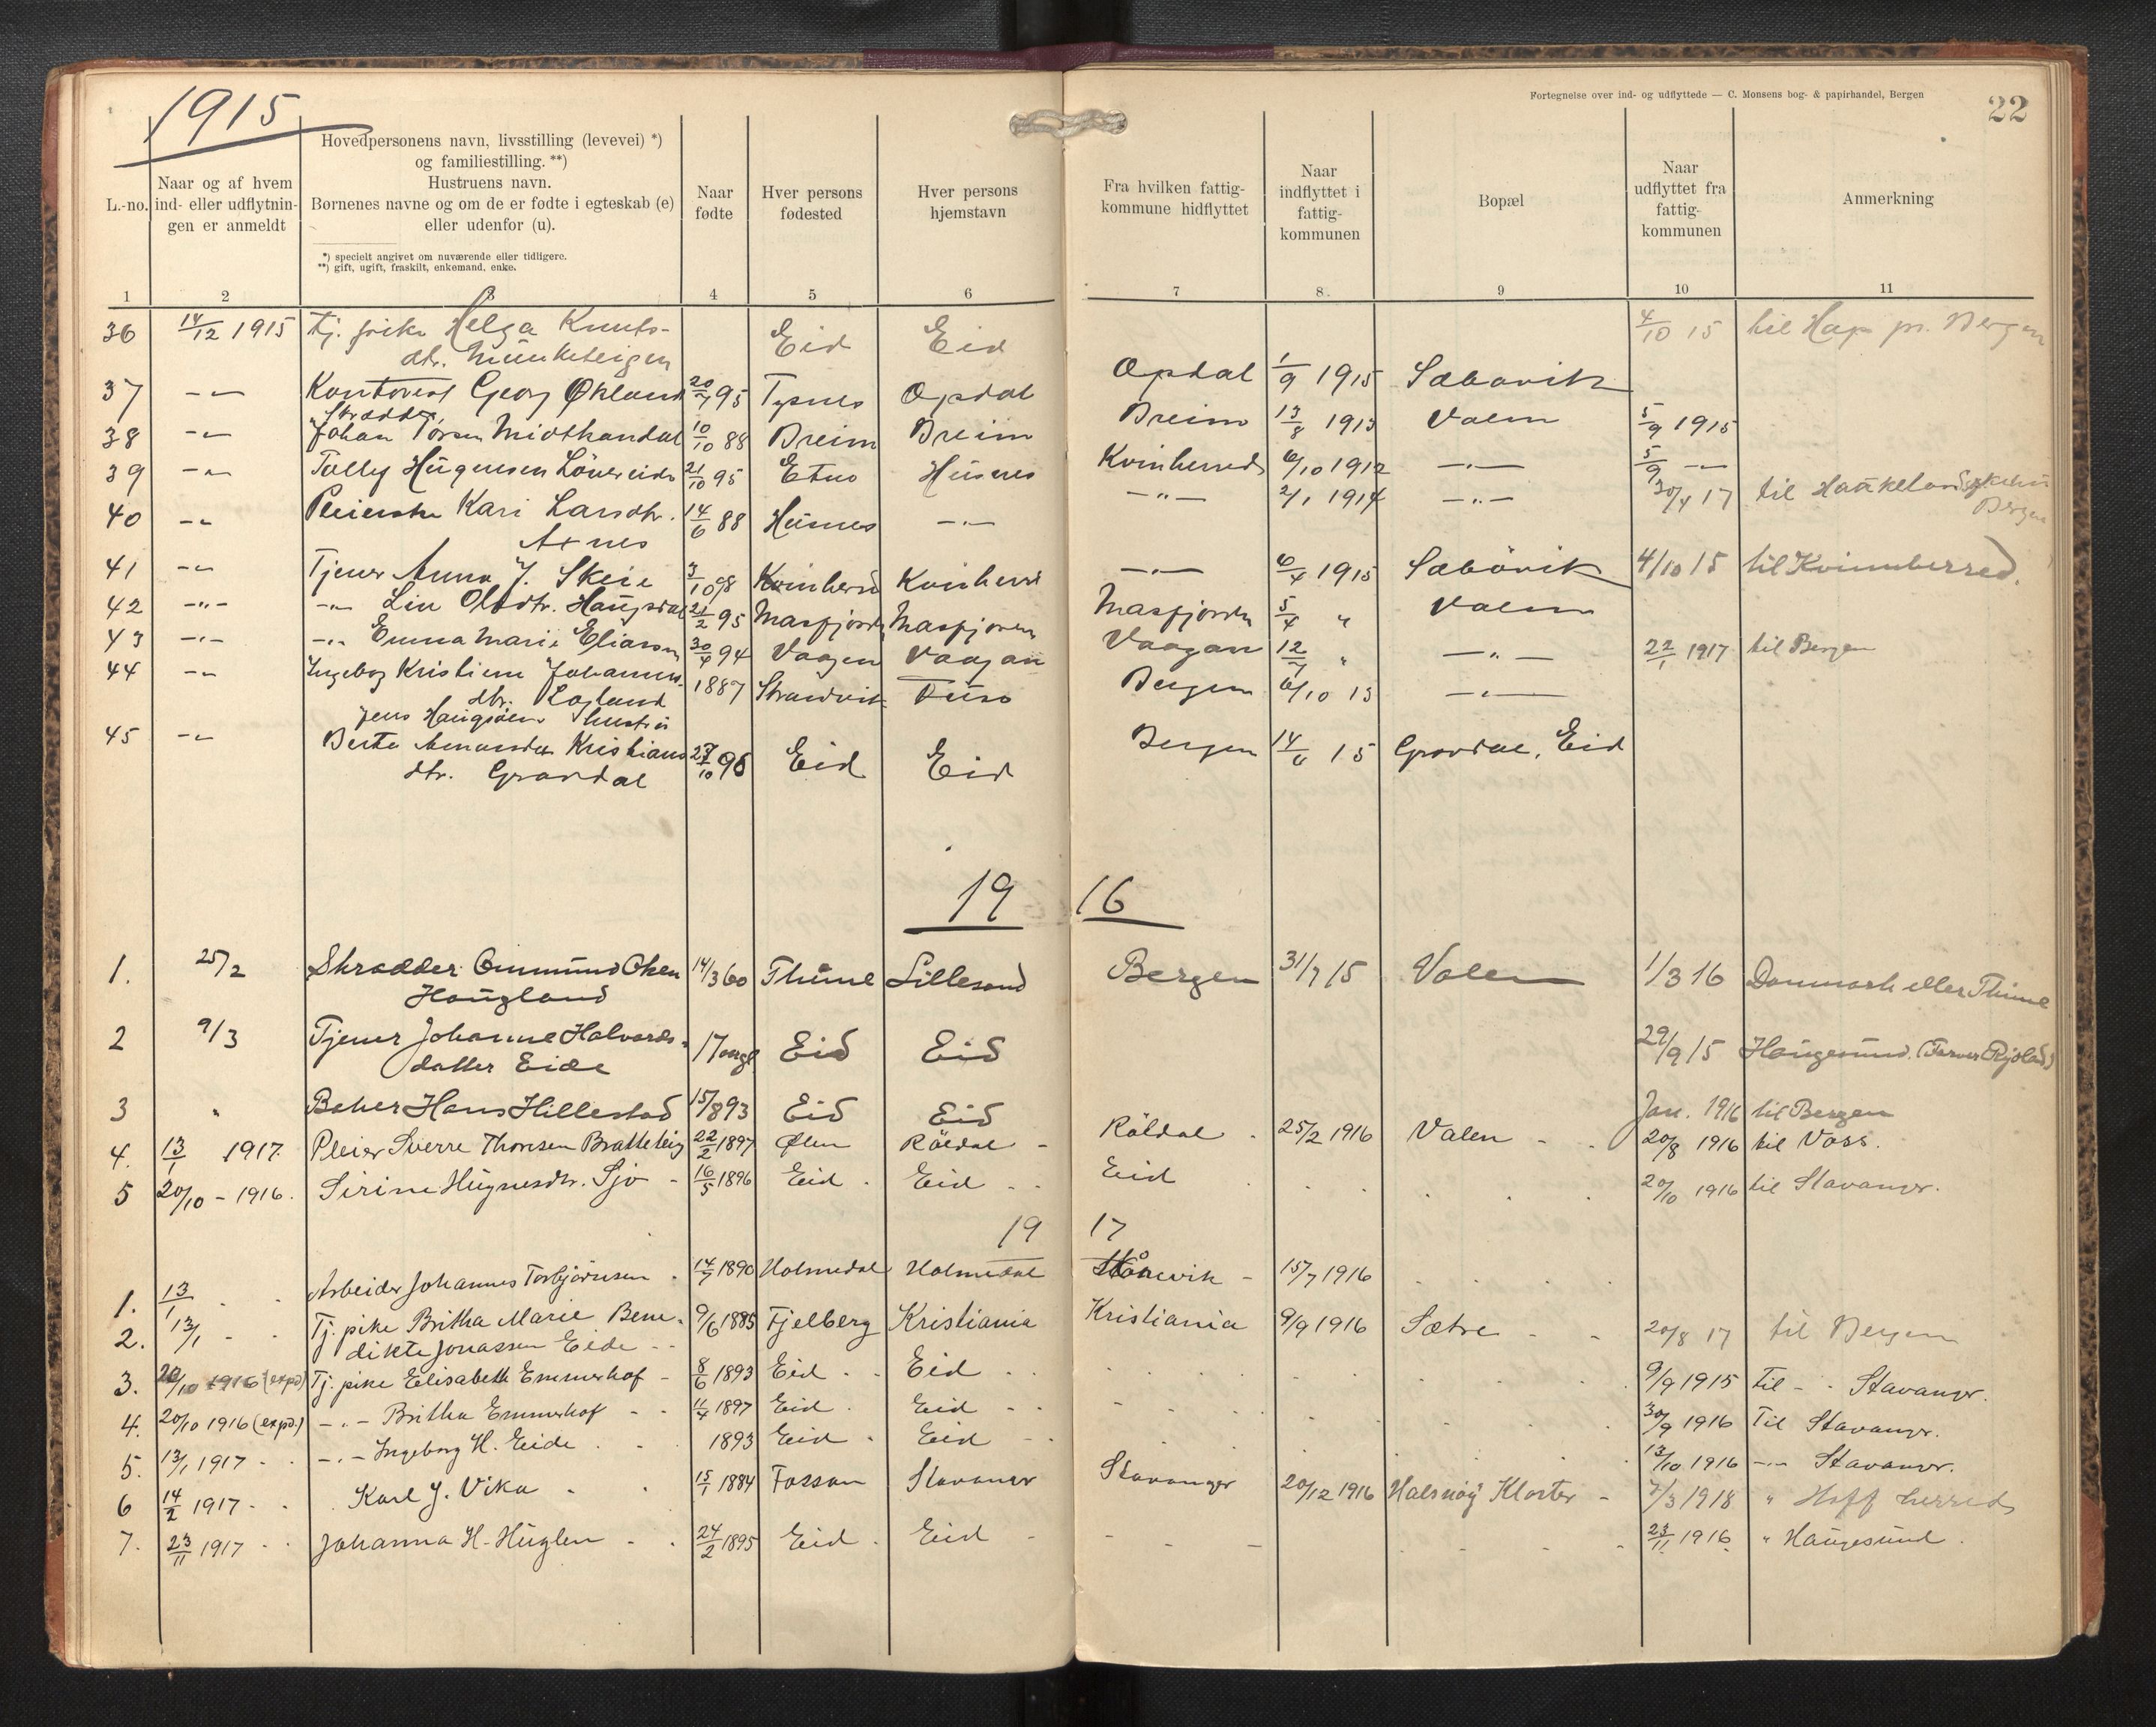 1915
Fortegnelse over ind- og udflyttede — C. Monsens bog- & papirhandel, Bergen
22
L.-no.
Naar og af hvem
ind- eller udflytnin-
gen er anmeldt
Hovedpersonens navn, livsstilling (levevei) *)
og familiestilling. **)
Hustruens navn.
Børnenes navne og om de er fødte i egteskab (e)
eller udenfor (u).
*) specielt angivet om nuværende eller tidligere.
**) gift, ugift, fraskilt, enkemand, enke.
Naar
fødte
Hver persons
fødested
Hver persons
hjemstavn
Fra hvilken fattig-
kommune hidflyttet
Naar
indflyttet i
fattig-
kommunen
Bopæl
Naar
udflyttet fra
fattig-
kommunen
Anmerkning
1 2 3 4 5 6 7 8. 9 10 11
36 14/12 1915 Tj. pike Helga Knuts- Eid Eid 4/10 15 til Hop pr. Bergen
dtr. Munketeigen
37 -"- Kontorist Georg Økland 20/7 95 Tysnes Opdal Opdal 1/9 1915 Sæbøvik
Skrædder
38 -"- Johan Midthandal 10/10 88 Breim Breim Breim 13/8 1913 Valen 5/9 1915
39 -"- 21/10 95 Etne Husnes Kvinherred 6/10 1912 -"- 5/9 -"-
40 -"- Pleierske Kari Larsdtr. 14/6 88 Husnes -"- -"- 2/1 1914 -"- 30/4 17 til Haukeland
Axnes Bergen
41 -"- Tjener Anna J. Skeie 3/10 98 Kvinherred Kvinherred -"- 6/4 1915 Sæbövik 4/10 15 til Kvinnherred.
42 -"- -"- Lin Olsdtr. Haugsdal 21/2 95 Masfjorden Masfjorden Masfjorden 5/4 " Valen
43 -"- -"- Emma Marie Eliasen 30/4 94 Vaagan Vaagan Vaagan 12/7 " -"- 22/1 1917 til Bergen
44 -"- Ingeborg Kristine Johannes- 1887 Strandvik Fuse Bergen 6/10 15 -"-
dtr.
Jens hustru
45 -"- Berte Kristians 27/10 96 Eid Eid Bergen 14/6 15 Gravdal, Eid
dtr. Gravdal
19 16
1. 25/2 Skrædder Ommund Olsen 14/3 60 Thime Lillesand Bergen 31/7 15 Valen 1/3 16 Danmark eller Thime
Haugland
2 9/3 Tjener Johanne Halvards- 17 aar Eid Eid 29/9 15 Haugesund.
datter Eide
3 " Baker Hans Hillestad 15/8 93 Eid Eid Jan. 1916 til Bergen
4. 13/1 1917 Pleier Sverre Thoresen Bratteteig 22/2 1897 Ølen Röldal - Röldal - 25/2 1916 Valen - - 20/8 1916 til Voss.
5 20/10 - 1916. Sirine Hugnesdtr. Sjo - 16/5 1896 Eid - Eid - - Eid 20/10 1916 til Stavanger.
19 17
1. 13/1 - - Arbeider Johannes Torbjörnsen - 14/7 1890 Holmedal Holmedal Skånevik - 15/7 1916
2. 13/1 - Tj. pike Britha Marie Bene- 9/6 1885 Fjelberg Kristiania Kristiania 9/9 1916 Sætre - - 20/8 17 til Bergen
dikte Jonassen Eide - -
3. 20/10 1916 (expd) Tj. pike Elisabeth Emmerhof - 8/6 1893 Eid - - Eid - - 9/9 1915 Til - - Stavanger.
4. 20/10 1916 (expd.) -"- Britha Emmerhof - - 11/4 1897 Eid - Eid - - 30/9 1916 Til Stavanger.
5. 13/1 1917 - - -"- Ingeborg H. Eide - - 1893 Eid - Eid - - 13/10 1916 -"- Stavanger.
6 14/2 1917 - - Karl J. Vika - - 15/1 1884 Fossan Stavanger Stavanger 20/12 1916 Halsnöy Kloster - 7/3 1918 " Hoff herred
7. 23/11 1917 - - Johanna H. Huglen - - 24/2 1895 Eid - Eid - 23/11 1916 " Haugesund.